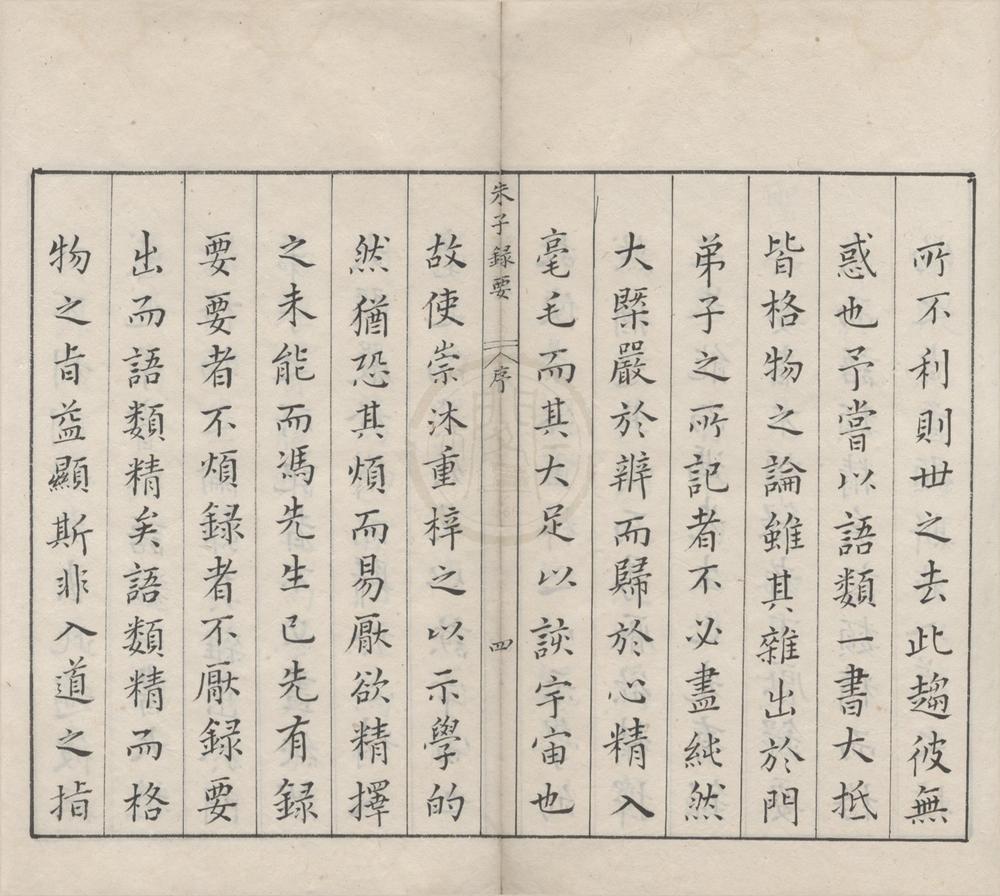 所不利則世之去此趨彼無
惑也予嘗以語類一書大抵
皆格物之論雖其雜出於門
弟子之所記者不必盡純然
大槩嚴於辨而歸於心精入
毫毛而其大足以該宇宙也
朱子録要 序 四
故使崇沐重梓之以示學的
然猶恐其煩而易厭欲精擇
之未能而馮先生已先有録
要要者不煩録者不厭録要
出而語類精矣語類精而格
物之旨益顯斯非入道之指